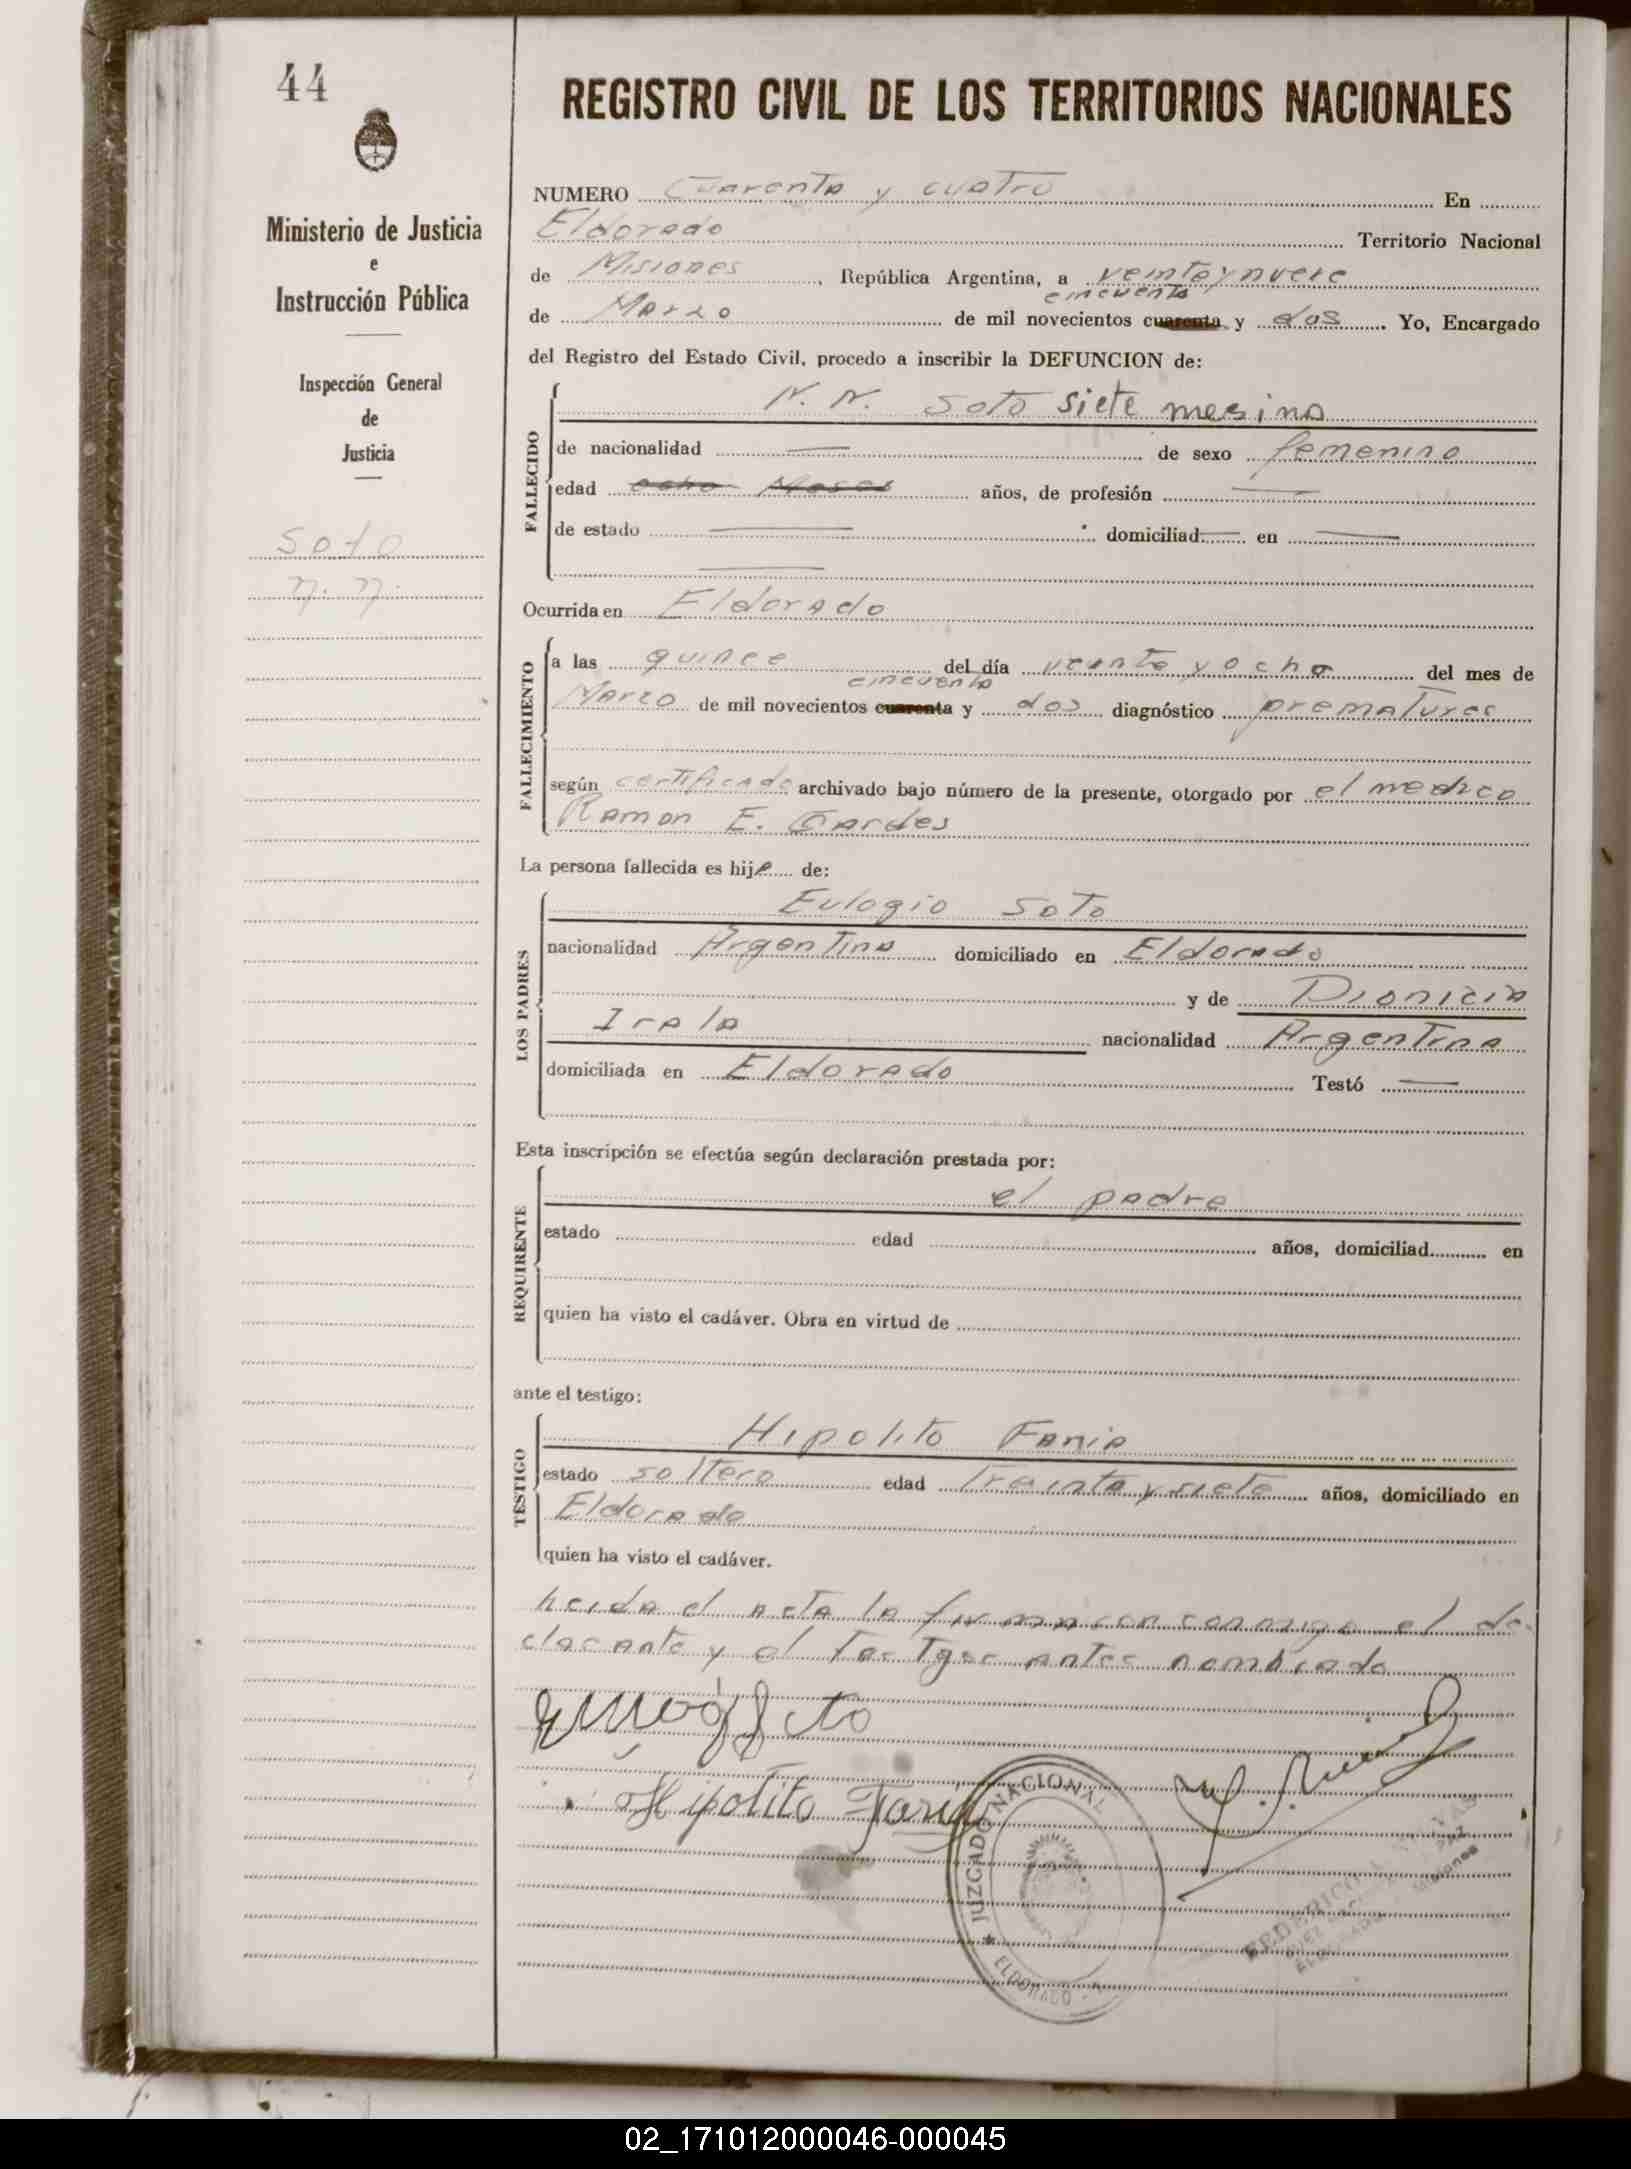 44
REGISTRO CIVIL DE LOS TERRITORIOS NACIONALES
Ministerio de Justicia
e
Instrucción Pública
Inspección General
de
Justicia
Soto
N. N.
NUMERO Cuarenta y cuatro En
Eldorado Territorio Nacional
de Misiones, República Argentina, a veinte y nueve
cincuenta
de Marzo de mil novecientos cuarenta y dos. Yo, Encargado
del Registro del Estado Civil, procedo a inscribir la DEFUNCION de:
FALLECIDO
N. N. Soto siete mesina
de nacionalidad — de sexo femenino
edad ocho Meses años, de profesión —
de estado — domiciliad — en —
Ocurrida en Eldorado
FALLECIMIENTO
a las quince del día veinte y ocho del mes de
cincuenta
Marzo de mil novecientos cuarenta y dos diagnóstico prematurez
según certificado archivado bajo número de la presente, otorgado por el medico
Ramon E. Gardes
La persona fallecida es hija de:
LOS PADRES
Eulogio Soto
nacionalidad Argentina domiciliado en Eldorado
y de Dionicia
Irala nacionalidad Argentina
domiciliada en Eldorado Testó —
Esta inscripción se efectúa según declaración prestada por:
REQUIRENTE
el padre
estado edad años, domiciliad en
quien ha visto el cadáver. Obra en virtud de
ante el testigo:
TESTIGO
Hipolito Faria
estado soltero edad treinta y siete años, domiciliado en
Eldorado
quien ha visto el cadáver.
Leida el acta la firman con conmigo el de-
clarante y el testgoc antes nombrado
Hipolito Faria
JUZGADO NACIONAL
★ ELDORADO
FEDERICO
JUEZ PAZ
ELDORADO Misiones
02_171012000046-000045